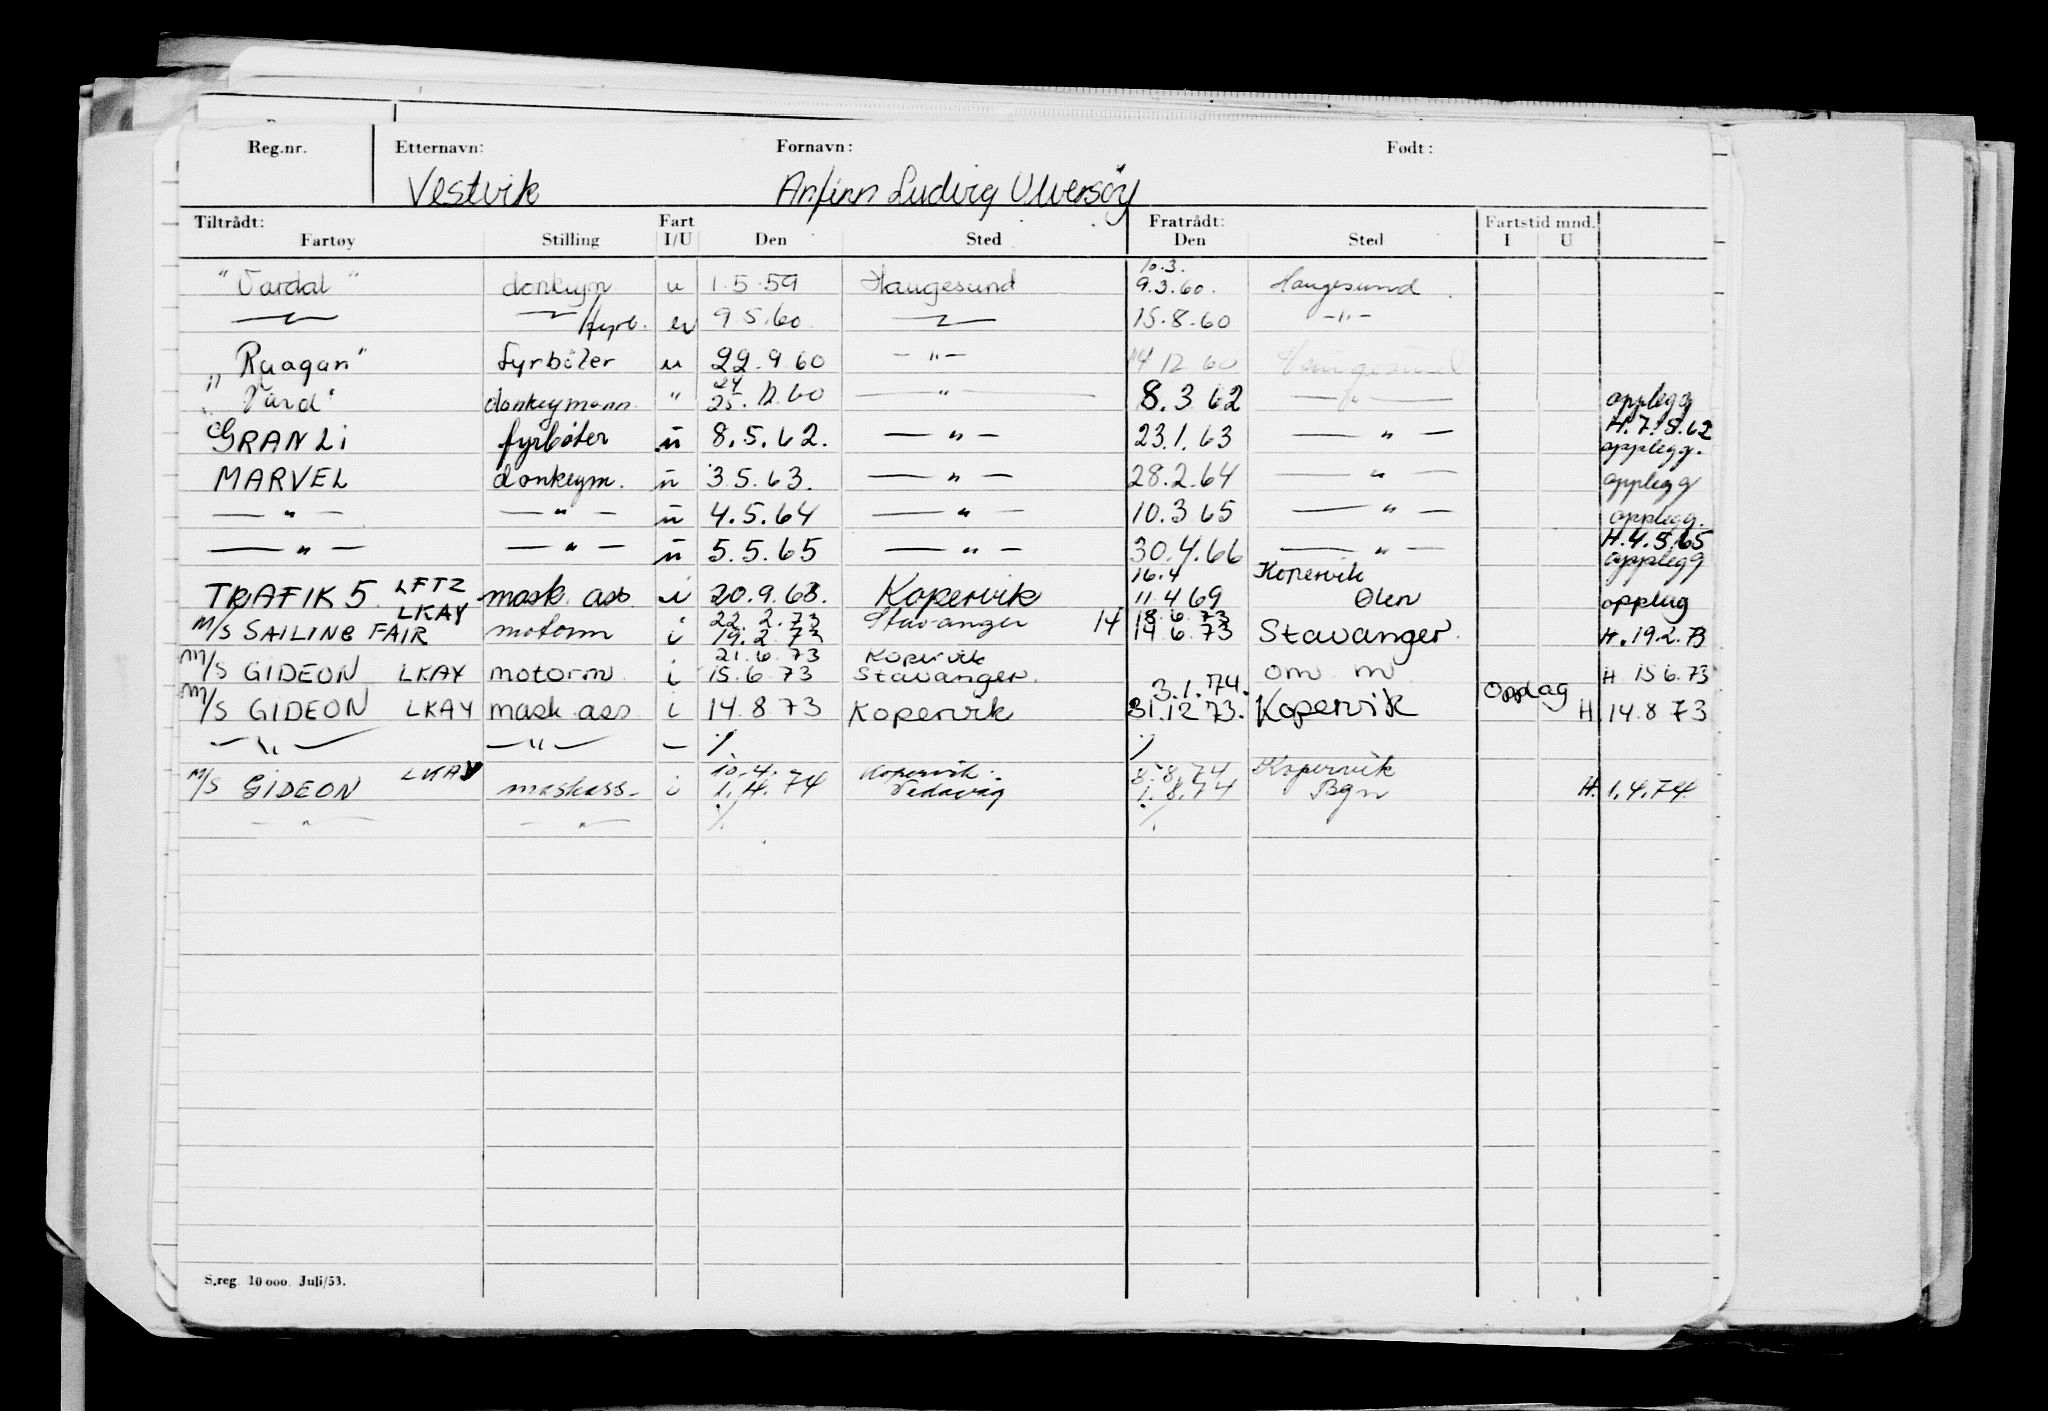 Reg.nr. Etternavn: Fornavn: Født:
Vestvik Arfinn Ludvig Ulversøy
Tiltrådt: Fart Fratrådt: Fartstid mnd.
Fartøy Stilling I/U Den Sted Den Sted I U
10.3.
"Vardal" donkeym u 1.5.59 Haugesund 9.3.60. Haugesund
—"— —"— fyrb. u 9.5.60 —"— 15.8.60 -"-
"Ryagan" fyrbøter u 22.9.60 -"- 14 12 60 Haugesund
24
"Vard" donkeymann " 25.12.60 —"— 8.3 62 —"— opplegg
H.7.5.62
GRANLI fyrbøter u 8.5.62. —"— 23.1.63 —"— opplegg.
MARVEL donkeym. u 3.5.63. —"— 28.2.64 —"— opplegg
—"— —"— u 4.5.64 —"— 10.3.65 —"— opplegg.
H.4.5.65
—"— —"— u 5.5.65 —"— 30.4.66 —"— opplegg
LFTZ 16.4 Kopervik
TRAFIK 5 mask. ass. i 20.9.68. Kopervik 11.4 69 Ølen opplag
LKAY 22.2.73 Stavanger 18.6.73
M/S SAILING FAIR motorm i 19.2.73 14 14.6.73 Stavanger. H.19.2.73
21.6.73 Kopervik
M/S GIDEON LKAY motorm i 15.6.73 Stavanger. om m H 15.6.73
3.1.74. Opplag
M/S GIDEON LKAY mask ass i 14.8.73 Kopervik 31.12.73. Kopervik H. 14.8 73
—"— —"— — ./. ./.
LKAY 10.4. Kopervik 8.8.74 Kopervik
M/S GIDEON maskass- i 1.4.74 Vedavåg 1.8.74 Bgn H. 1.4.74
—"— —"— ./. ./.
S.reg. 10 000. Juli/53.